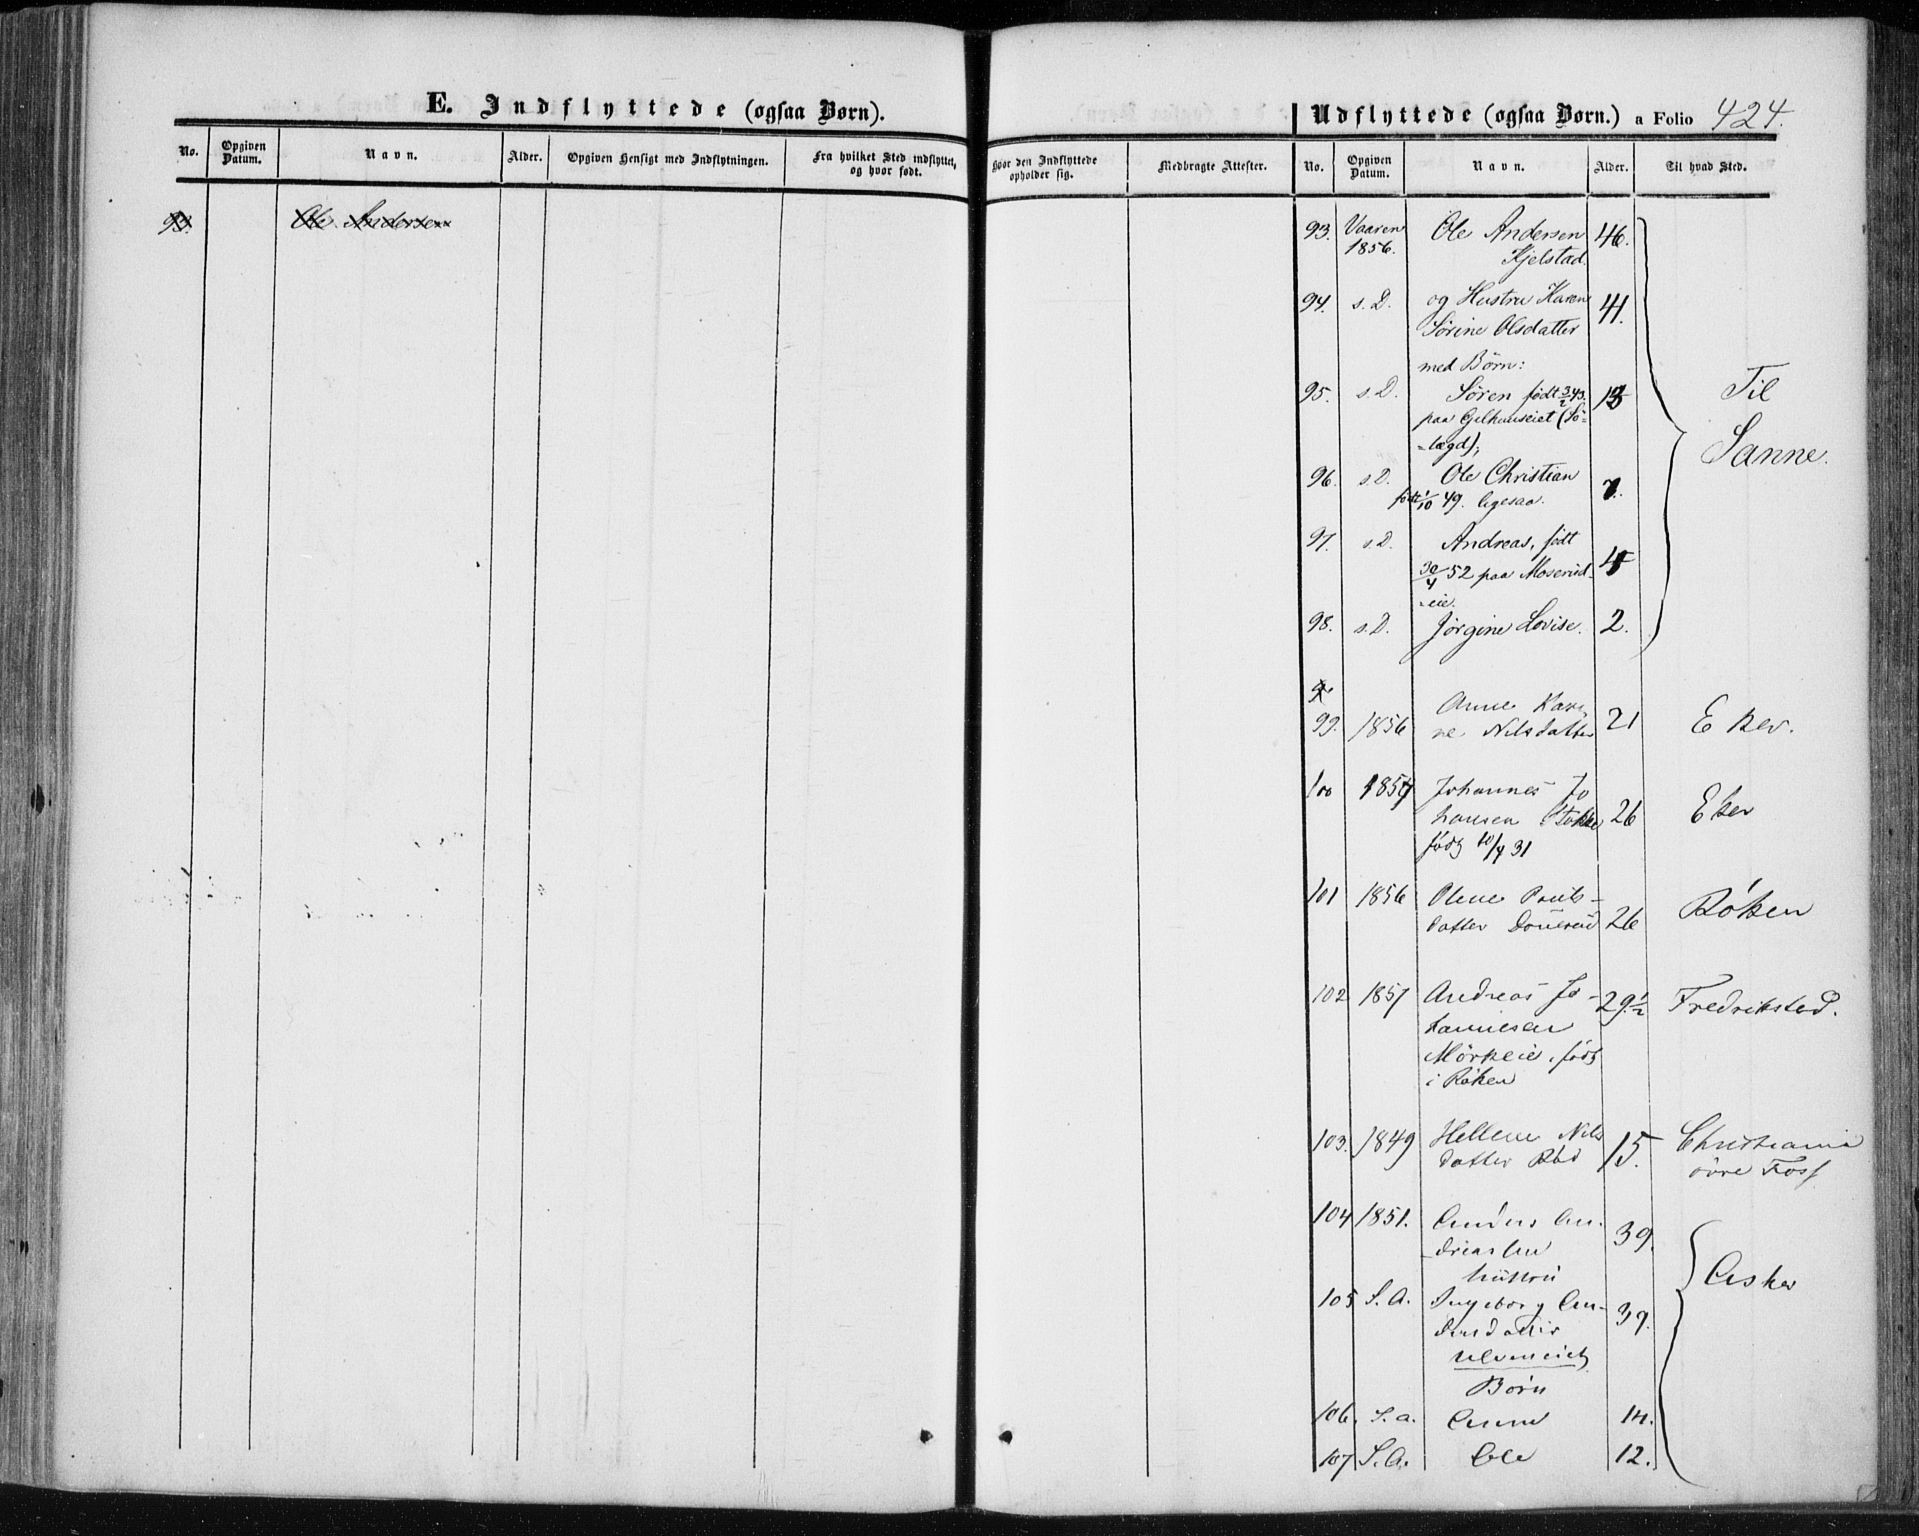 E. Indflyttede (ogsaa Børn).
No. Opgiven Datum. Navn. Alder. Opgiven Hensigt med Indflytningen. Fra hvilket Sted indflyttet, og hvor født.
93. Ole Andersen
Udflyttede (ogsaa Børn.) a Folio 424.
Hvor den Indflyttede opholder sig. Medbragte Attester. No. Opgiven Datum. Navn. Alder. Til hvad Sted.
93. Vaaren Ole Andersen 46.
1856. Kjelstad.
94. s.D. og Hustru Karen 41.
Sørine Olsdatter
med Børn:
95. s.D. Søren født 3/2 43. 13
paa Gilhuuseiet (Sö-
-lægd);
Til
Sanne.
96. s.D. Ole Christian 7.
født 1/10 49. ligesaa.
97. s.D. Andreas, født 4
30/4 52 paa Moserud-
eie.
98. s.D. Jörgine Lovise. 2.
99. 1856 Anne Kari- 21 Eker.
ne Nilsdatter
100 1857 Johannes Jo 26 Eker
hansen Stokke
født 10/4 31
101 1856 Olene Pouls- 26 Röken
datter
102 1857 Andreas Jo- 29 1/2 Fredrikstad.
hannesen
Mörkeie, født
i Röken
103. 1849 Hellene Nils 15. Christiania
datter Röd övre Foss
104 1851. Anders An- 39.
dreassen
hustru
Asker
105 S.A. Ingeborg An- 39.
dersdatter
Ulveneiet
Børn
106. S.a. Anne 14.
107 S.A. Ole 12.